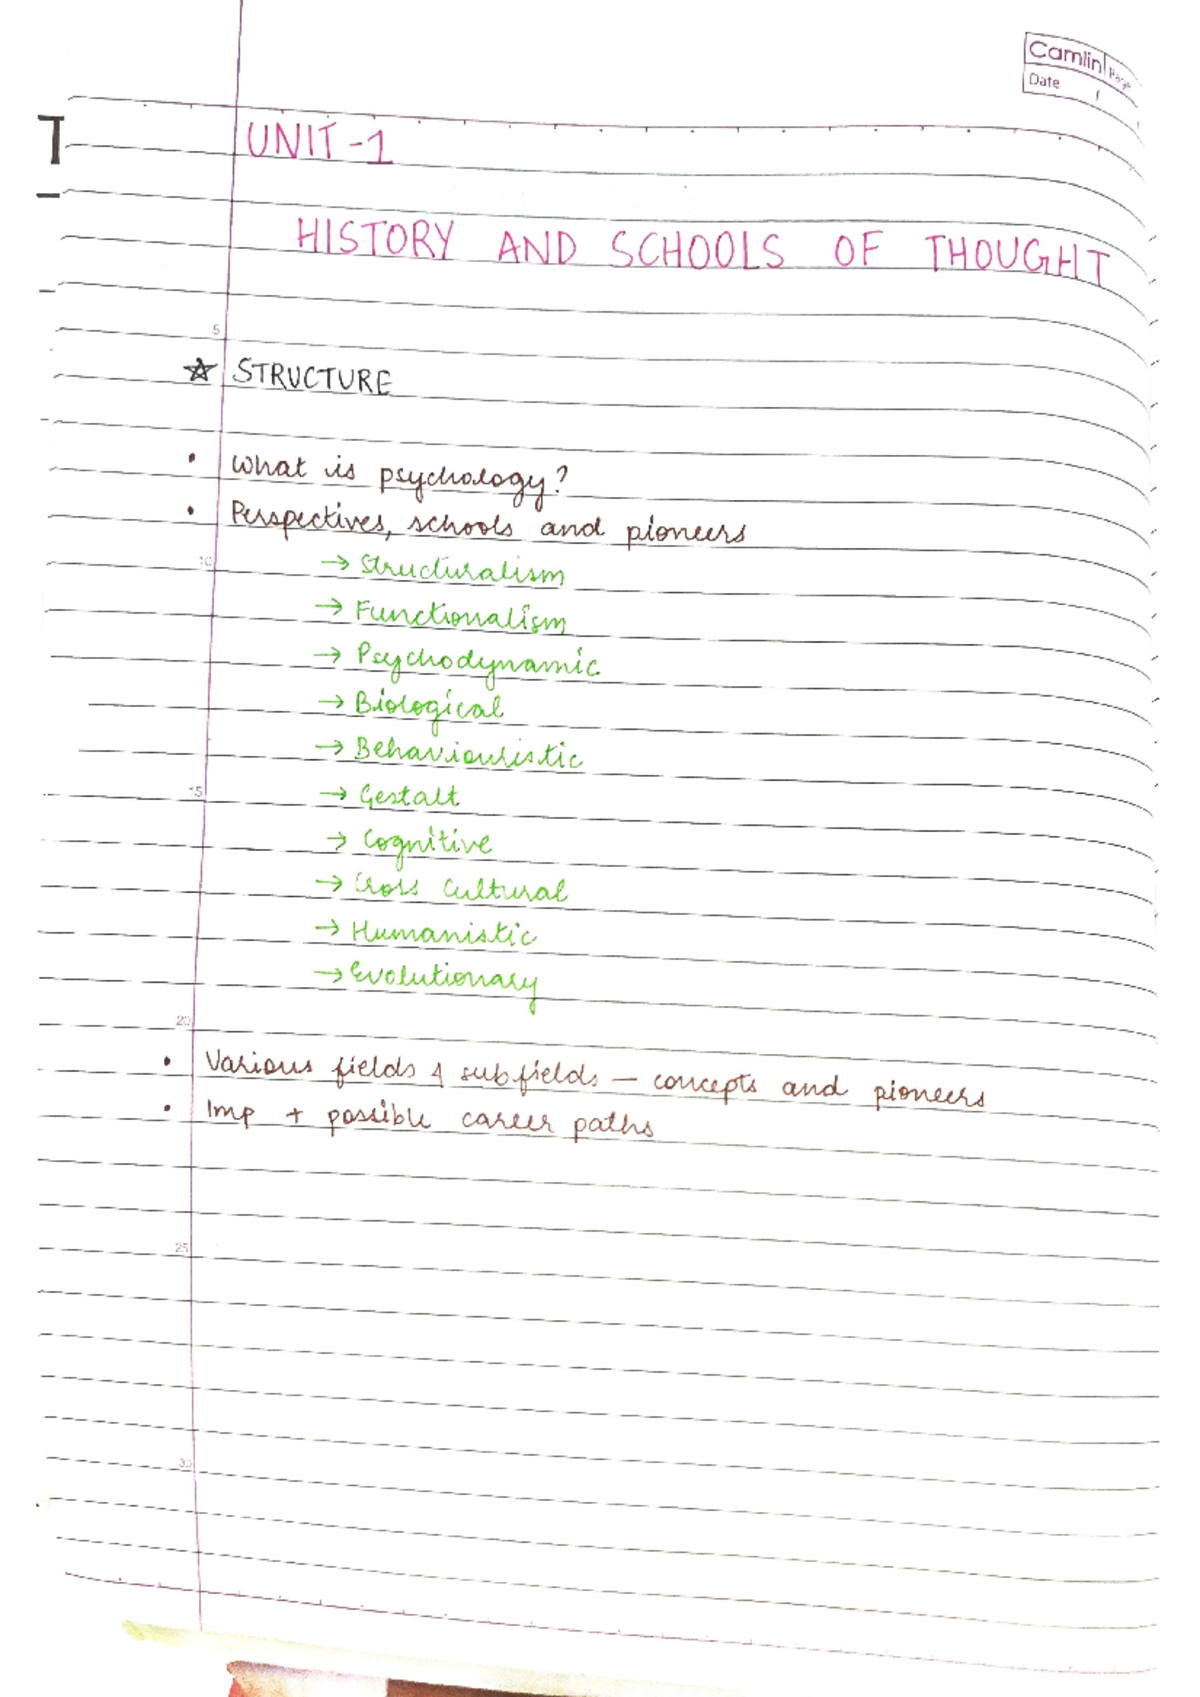 Camlin Page
Date /
T
UNIT-1
HISTORY AND SCHOOLS OF THOUGHT
5
☆ STRUCTURE
• What is psychology?
• Perspectives, schools and pioneers
10
→ Structuralism
→ Functionalism
→ Psychodynamic
→ Biological
→ Behaviouristic
15
→ Gestalt
→ Cognitive
→ Cross Cultural
→ Humanistic
→ Evolutionary
20
• Various fields & subfields – concepts and pioneers
• Imp + possible career paths
25
30